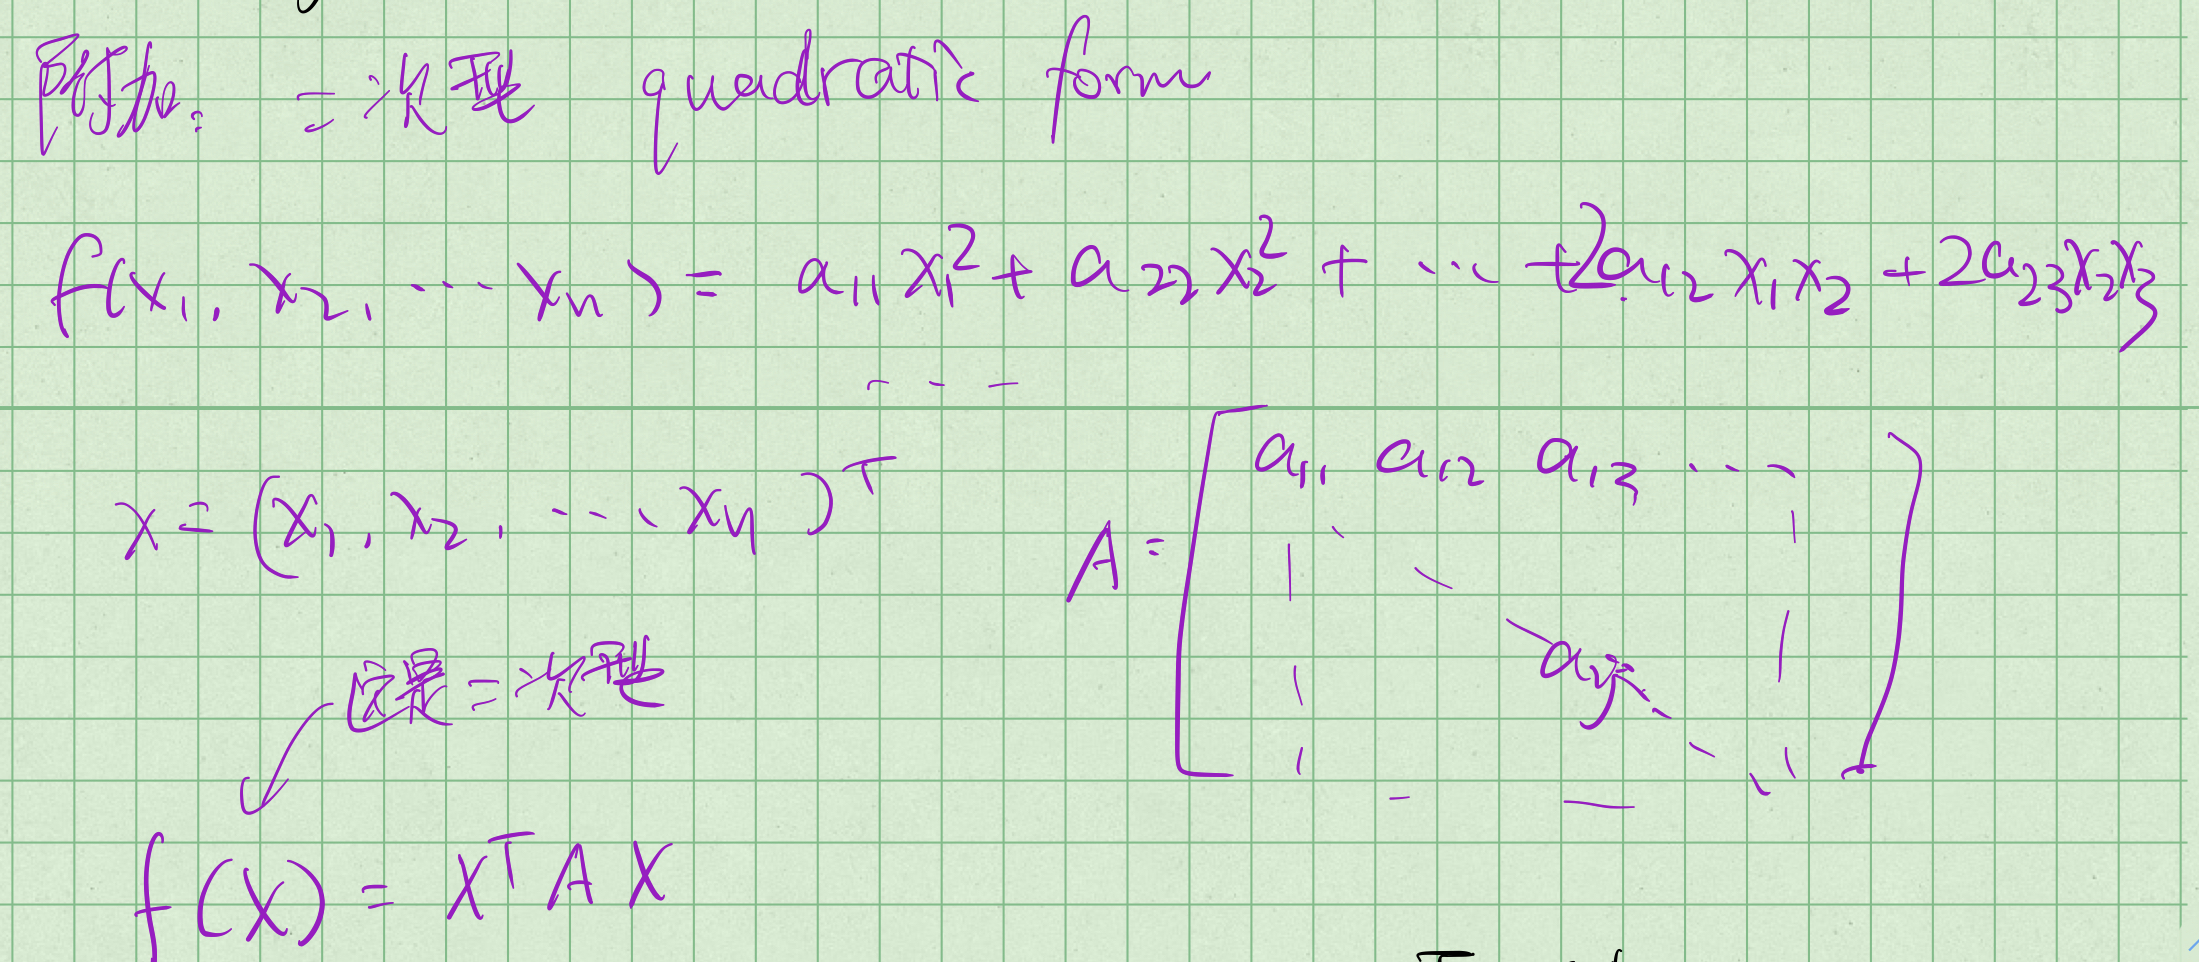 附加: 二次型 quadratic form
f(x₁, x₂, ... xₙ) = a₁₁x₁² + a₂₂x₂² + ... + 2a₁₂x₁x₂ + 2a₂₃x₂x₃
...
x = (x₁, x₂, ... xₙ)ᵀ
A = [a₁₁ a₁₂ a₁₃ ...
aᵢⱼ ]
这是二次型
f(X) = XᵀAX